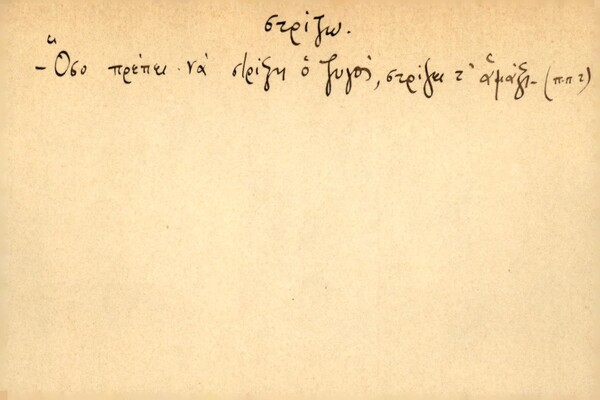 στρίζω.
– Ὅσο πρέπει νά στρίζη ὁ ζυγός, στρίζει τ' ἁμάξι – (π.π τ)